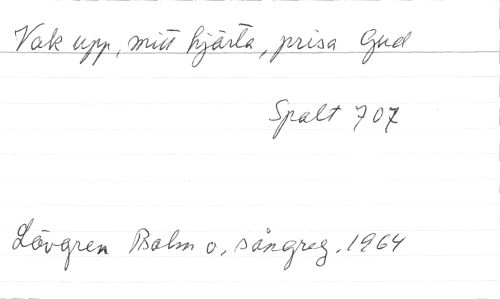 Vak upp, mitt hjärta, prisa Gud
Spalt 707
Lövgren Psalm o. sångreg. 1964